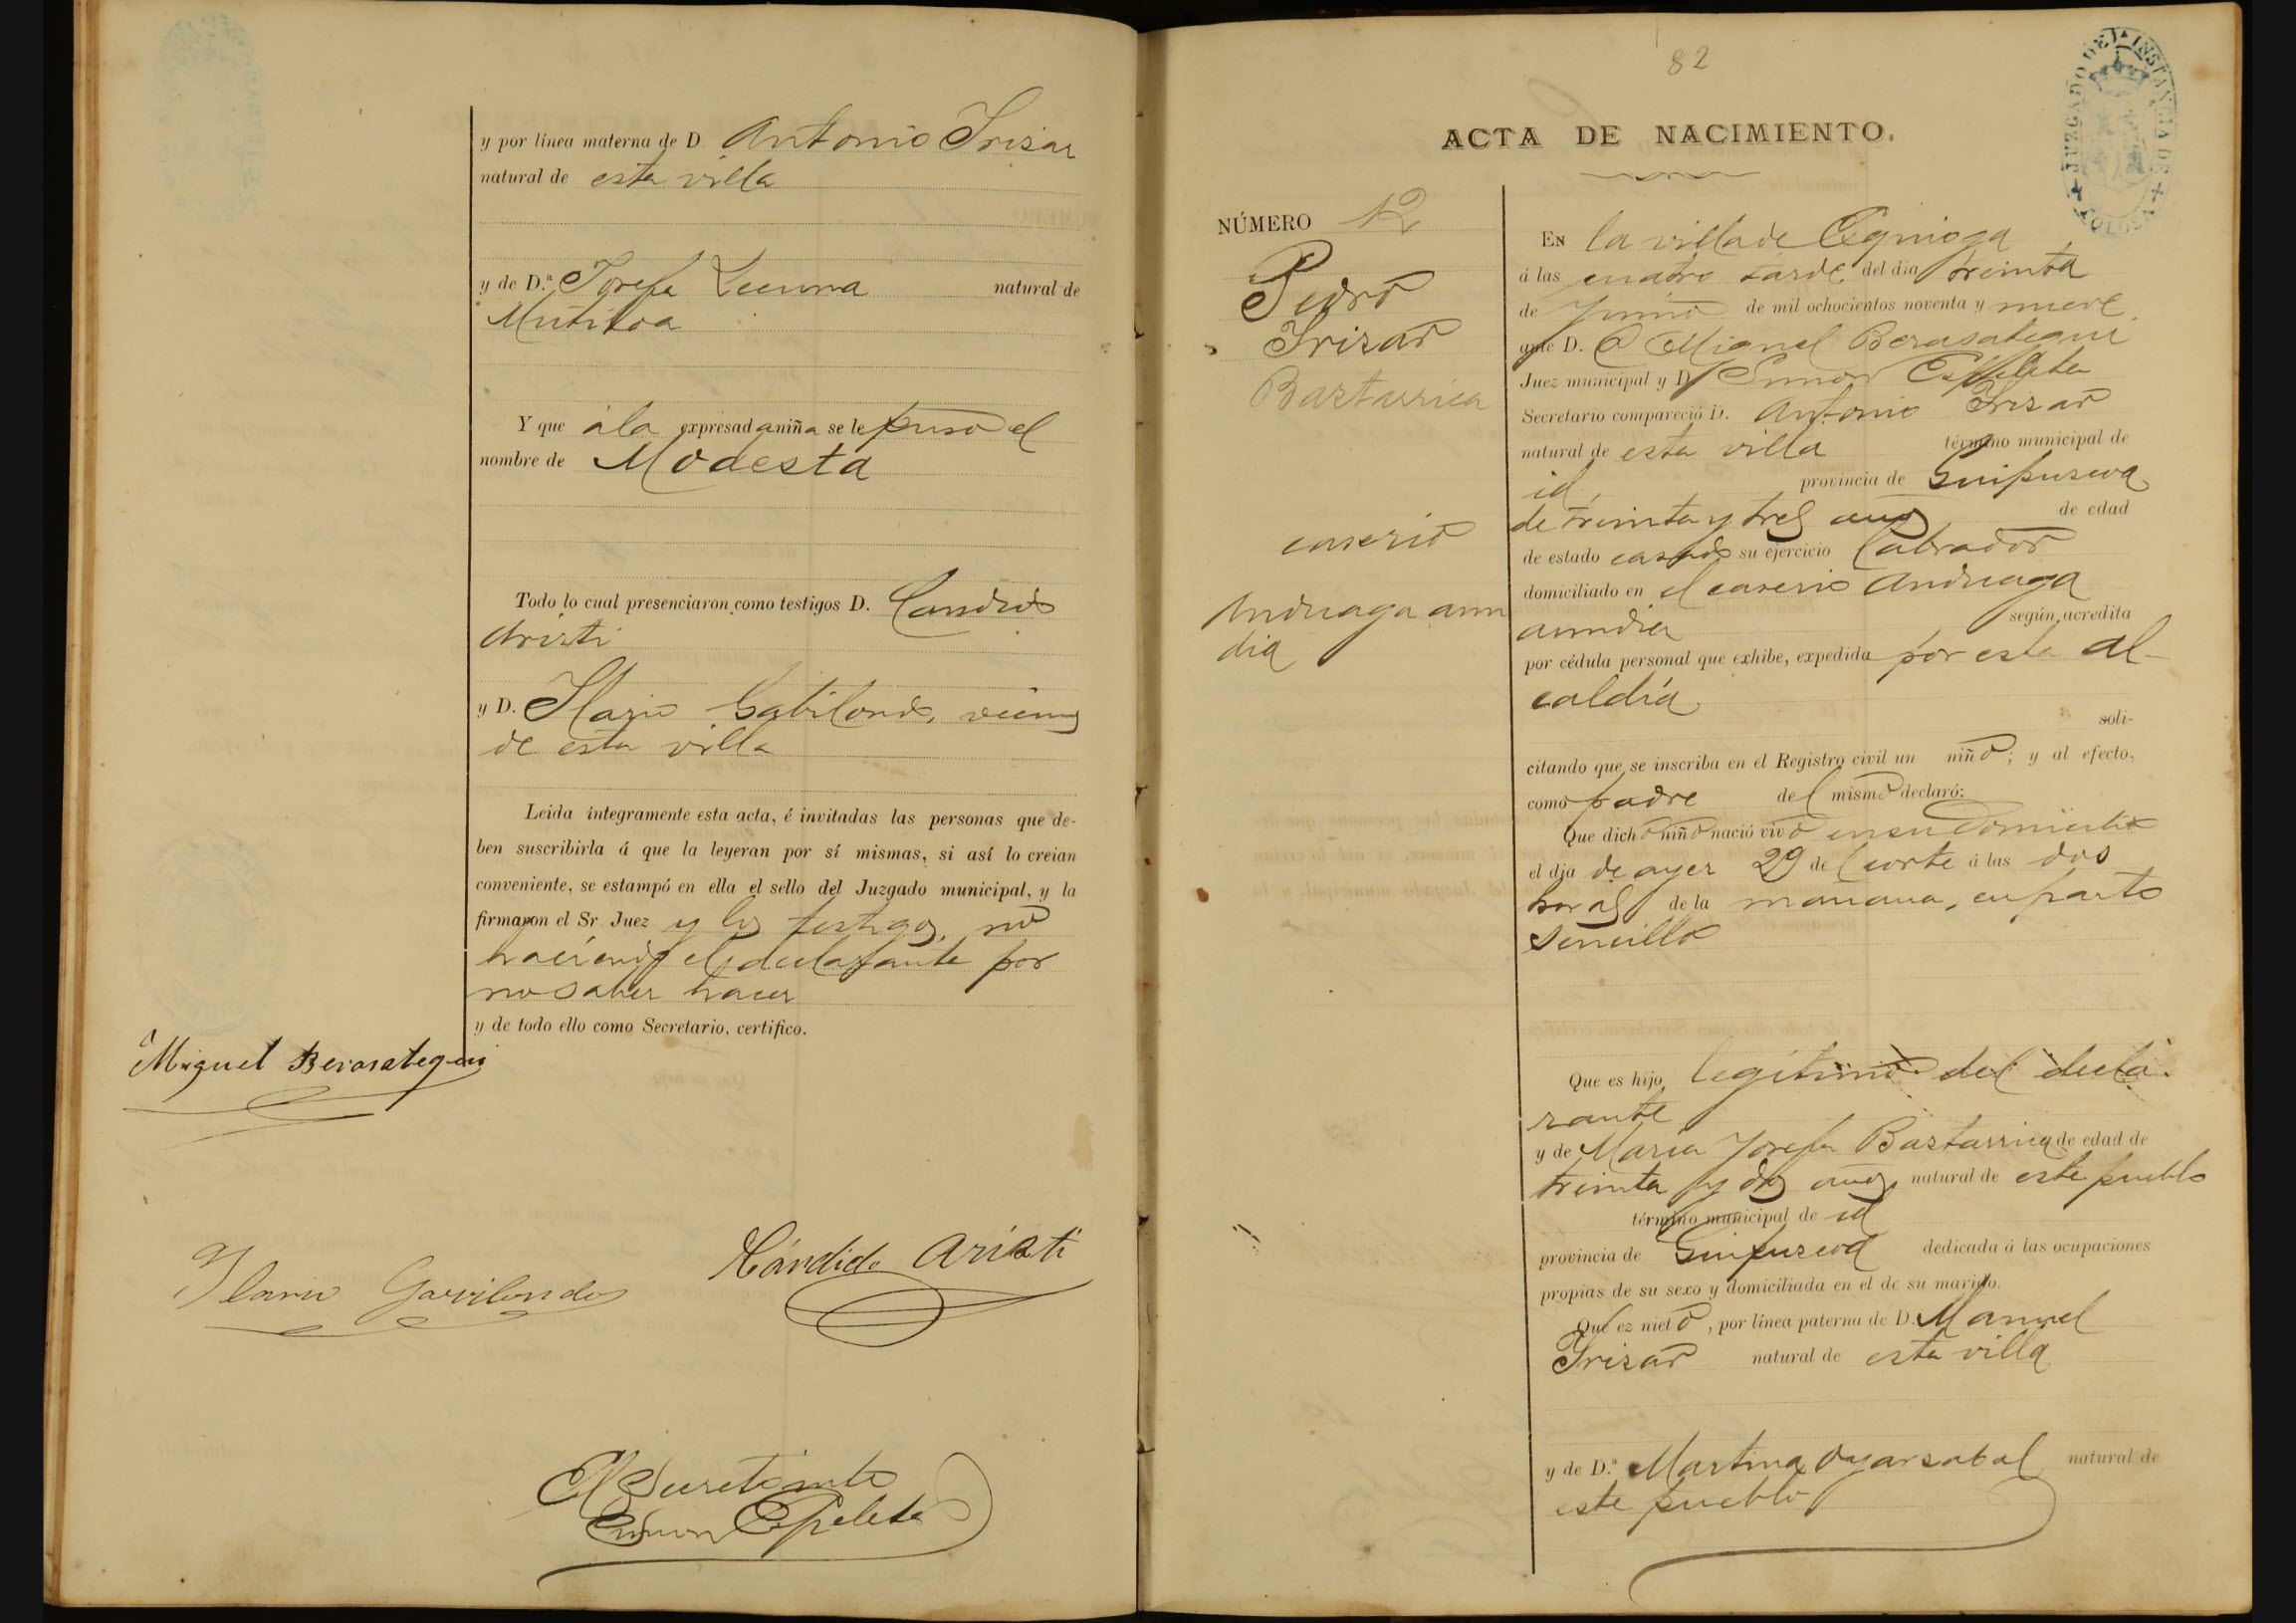 y por línea materna de D. Antonio Irisar
natural de esta villa
y de D.ª Josefa Lecuona natural de
Mutiloa
Y que á la expresada niña se le puso el
nombre de Modesta
Todo lo cual presenciaron como testigos D. Candido
Aristi
y D. Ilario Gabilondo, vecinos
de esta villa
Leida íntegramente esta acta, é invitadas las personas que de-
ben suscribirla á que la leyeran por sí mismas, si así lo creian
conveniente, se estampó en ella el sello del Juzgado municipal, y la
firmaron el Sr. Juez y los testigos, no
haciendo el declarante por
no saber hacer
y de todo ello como Secretario, certifico.
Miguel Berasategui
Ilario Gavilondo
Cándido Aristi
El Secretario
Simon Ezpeleta
82
JUZGADO DE 1ª INSTANCIA DE
ACTA DE NACIMIENTO.
NÚMERO 12
Pedro
Irizar
Baztarrica
caserio
Andreaga aun
dia
En la villa de
á las cuatro tarde del dia treinta
de Junio de mil ochocientos noventa y nueve
ante D. Miguel Berasategui
Juez municipal y D. Simon Ezpeleta
Secretario compareció D. Antonio Irizar
natural de esta villa término municipal de
id. provincia de Guipuscoa
de treinta y tres años de edad
de estado casado su ejercicio labrador
domiciliado en el caserio Andreaga
aundia según acredita
por cédula personal que exhibe, expedida por esta al-
caldía soli-
citando que se inscriba en el Registro civil un niño; y al efecto,
como padre del mismo declaró:
Que dicho niño nació vivo en su domicilio
el dia de ayer 29 del corte á las dos
horas de la mañana, en parto
sencillo
Que es hijo legítimo del decla-
rante
y de Maria Josefa Baztarrica de edad de
treinta y dos años natural de este pueblo
término municipal de id
provincia de Guipuscoa dedicada á las ocupaciones
propias de su sexo y domiciliada en el de su marido.
Que ez nieto, por línea paterna de D. Manuel
Irizar natural de esta villa
y de D.ª Martina Oyarsabal natural de
este pueblo